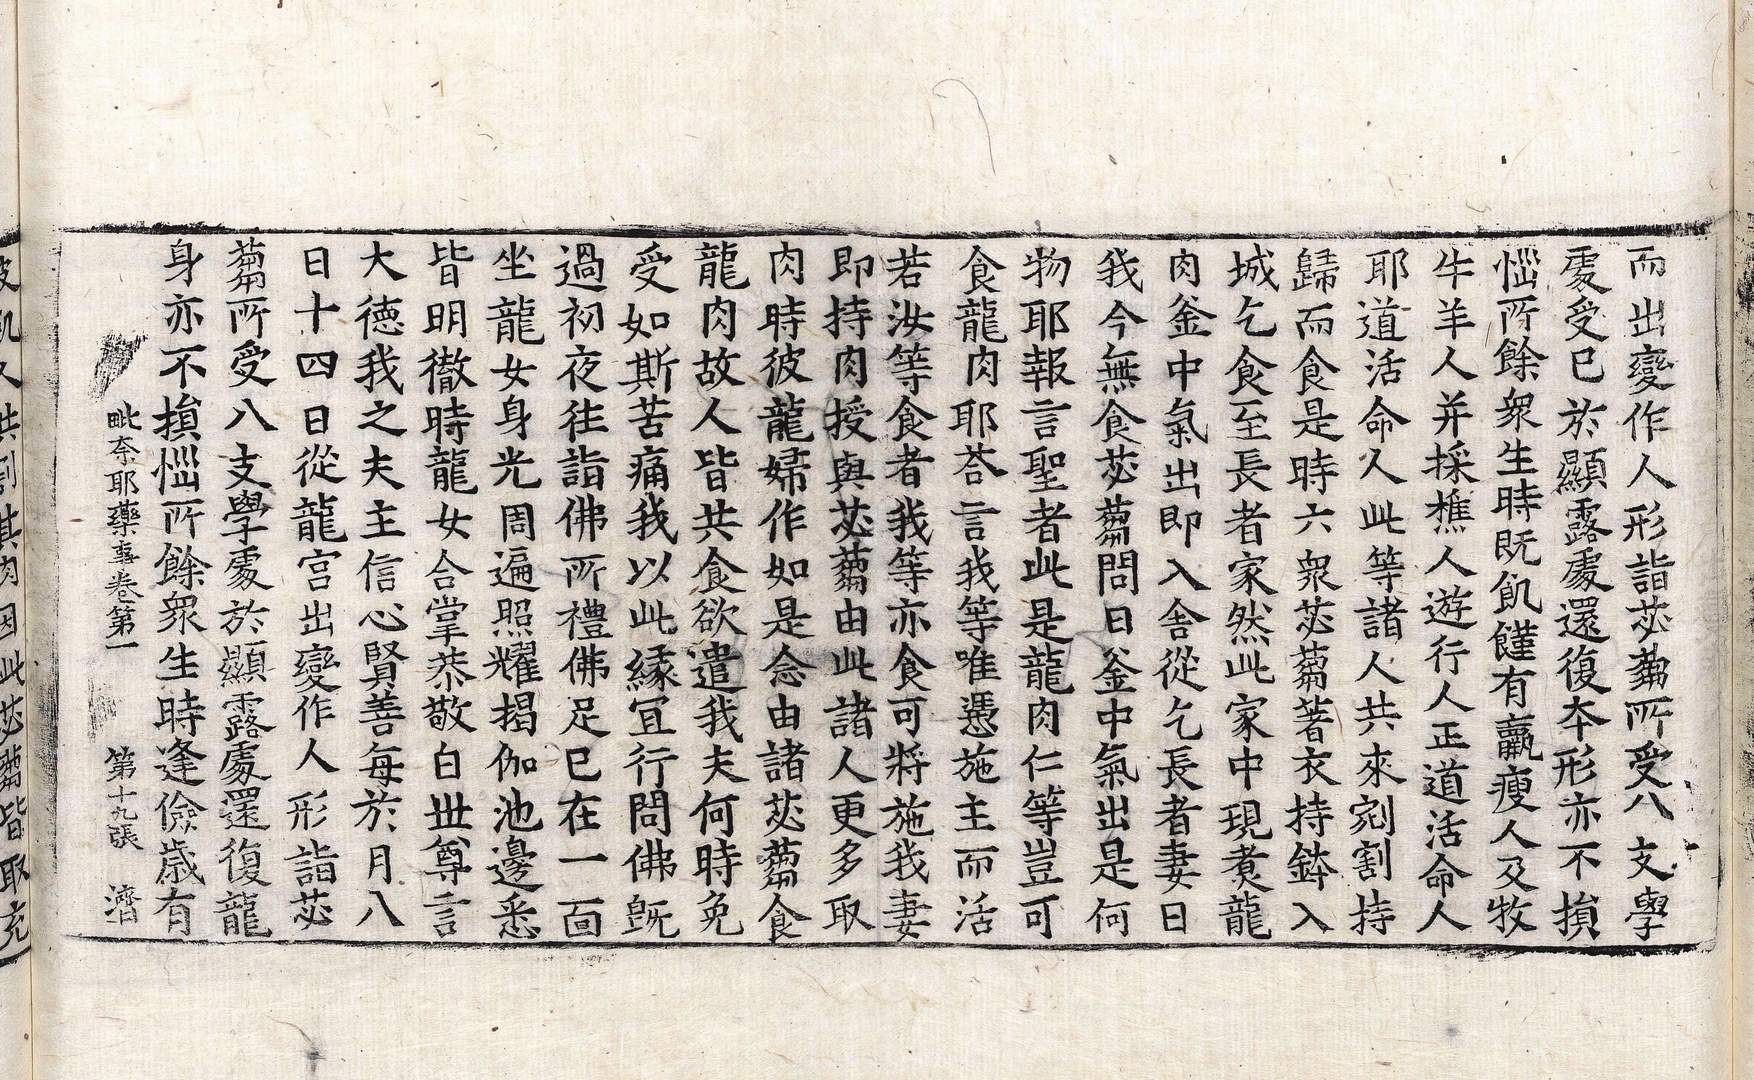 而出變作人形詣苾蒭所受八支學
處受已於顯露處還復本形亦不損
惱所餘衆生時旣飢饉有羸瘦人及牧
牛羊人并採樵人遊行人正道活命人
耶道活命人此等諸人共來剜割持
歸而食是時六衆苾蒭著衣持鉢入
城乞食至長者家然此家中現煮龍
肉釜中氣出即入舍從乞長者妻曰
我今無食苾蒭問曰釜中氣出是何
物耶報言聖者此是龍肉仁等豈可
食龍肉耶荅言我等唯憑施主而活
若汝等食者我等亦食可將施我妻
即持肉授與苾蒭由此諸人更多取
肉時彼龍婦作如是念由諸苾蒭食
龍肉故人皆共食欲遣我夫何時免
受如斯苦痛我以此緣宜行問佛旣
過初夜往詣佛所禮佛足已在一面
坐龍女身光周遍照耀揭伽池邊悉
皆明徹時龍女合掌恭敬白世尊言
大德我之夫主信心賢善每於月八
日十四日從龍宮出變作人形詣苾
蒭所受八支學處於顯露處還復龍
身亦不損惱所餘衆生時逢儉歲有
毗奈耶藥事卷第一 第十九張 濟
彼飢人共割其肉因此苾蒭皆取充